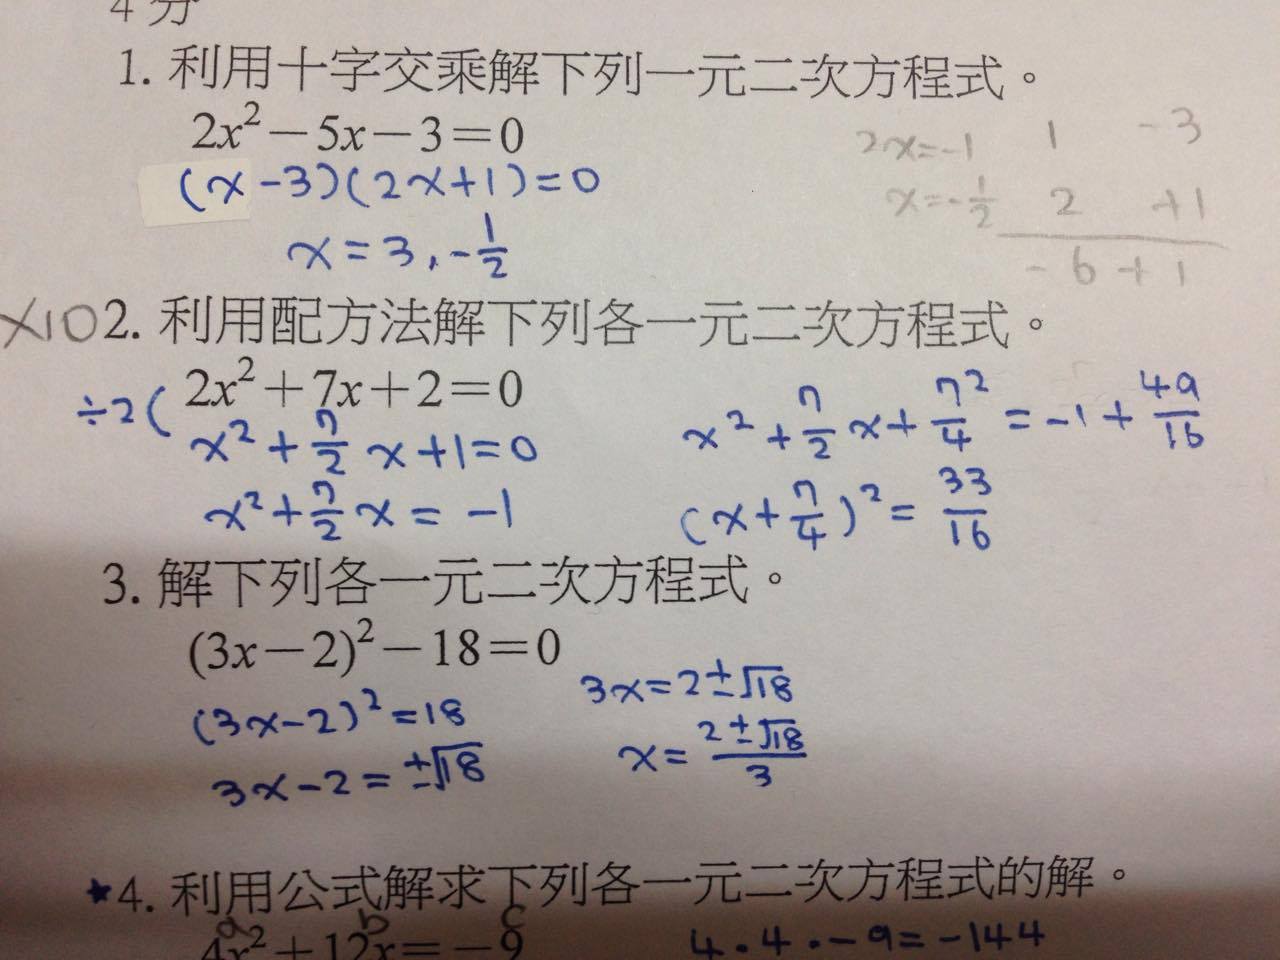 4分
1. 利用十字交乘解下列一元二次方程式。
2x²－5x－3＝0
(x-3)(2x+1)=0
x=3,-1/2
2x=-1 1 -3
x=-1/2 2 +1
-6+1
×10 2. 利用配方法解下列各一元二次方程式。
÷2( 2x²＋7x＋2＝0
x²+7/2 x+1=0
x²+7/2 x=-1
x²+7/2 x+7²/4=-1+49/16
(x+7/4)²=33/16
3. 解下列各一元二次方程式。
(3x－2)²－18＝0
(3x-2)²=18
3x-2=±√18
3x=2±√18
x=(2±√18)/3
★4. 利用公式解求下列各一元二次方程式的解。
a b c
4x²＋12x＝－9
4·4·-9=-144